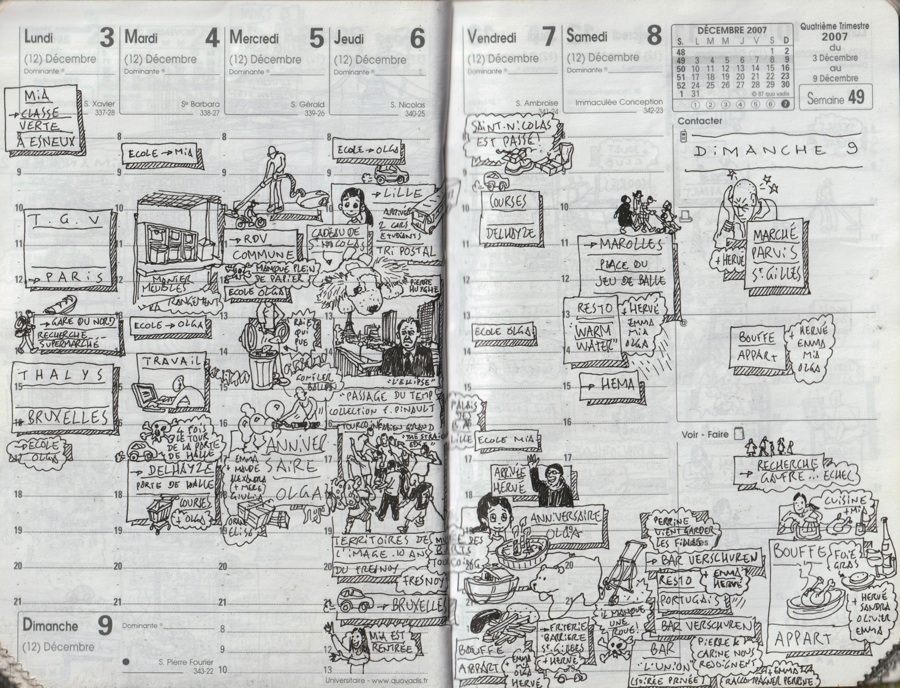 Lundi 3
(12) Décembre
Dominante
S. Xavier
337-28
MIA
→ CLASSE
VERTE
À ESNEUX
T.G.V
→ PARIS
→ GARE DU NORD
RECHERCHE
SUPERMARCHÉ
THALYS
BRUXELLES
→ ECOLE
OLGA
Mardi 4
(12) Décembre
Dominante
Se Barbara
338-27
ECOLE → MIA
MEUBLES
RANGEMENT
ECOLE → OLGA
TRAVAIL
LE TOUR
DE LA PORTE
DE HALLE
→ DELHAYZE
PORTE DE HALLE
COURSES
+ OLGA
Mercredi 5
(12) Décembre
Dominante
S. Gérald
339-26
→ RDV
COMMUNE
MANQUE PLEIN
DE PAPIER
ECOLE OLGA
QUI
PUE
GONFLER
BALLON
ANNIVER
SAIRE
OLGA
EMMA
Jeudi 6
(12) Décembre
Dominante
S. Nicolas
340-25
ECOLE → OLGA
CADEAU DE
ST NICOLAS
→ LILLE
2 CARS
ETUDIANTS
TRI POSTAL
PIERRE
HUYGHE
"L'ELLIPSE"
"PASSAGE DU TEMPS"
COLLECTION F. PINAULT
TERRITOIRES DE
L'IMAGE. 10 ANS
DU FRESNOY
FRESNOY
→ BRUXELLES
MIA EST
RENTRÉE
Universitaire - www.quovadis.fr
Dimanche 9
(12) Décembre
Dominante
S. Pierre Fourier
343-22
Vendredi 7
(12) Décembre
Dominante
S. Ambroise
341-24
SAINT-NICOLAS
EST PASSÉ!
COURSES
DELHAYZE
ECOLE OLGA
PALAIS
LILLE
ECOLE MIA
ARRIVÉE
HERVÉ
ANNIVERSAIRE
OLGA
BOUFFE
APPART
+ EMMA
MIA
OLGA
HERVÉ
→ FRITERIE
BARRIÈRE
ST GILLES
+ HERVÉ
Samedi 8
(12) Décembre
Dominante
Immaculée Conception
342-23
→ MAROLLES
PLACE DU
JEU DE BALLE
RESTO
"WARM
WATER"
+ HERVÉ
EMMA
MIA
OLGA
→ HEMA
PERRINE
VIENT GARDER
LES FILLES
→ BAR VERSCHUREN
RESTO
PORTUGAIS
+ EMMA
HERVÉ
IL MANQUE
UNE
ROUE!
BAR VERSCHUREN
BAR
"L'UNION"
(SOIRÉE PRIVÉE)
PIERRE &
CARINE NOUS
REJOIGNENT
RACCOMPAGNER PERRINE
DÉCEMBRE 2007
S. L M M J V S D
48 1 2
49 3 4 5 6 7 8 9
50 10 11 12 13 14 15 16
51 17 18 19 20 21 22 23
52 24 25 26 27 28 29 30
1 31
Quatrième Trimestre
2007
du
3 Décembre
au
9 Décembre
Semaine 49
Contacter
DIMANCHE 9
MARCHÉ
PARVIS
ST GILLES
+ HERVÉ
BOUFFE
APPART
+ HERVÉ
EMMA
MIA
OLGA
Voir - Faire
→ RECHERCHE
GAUFRE... ECHEC
CUISINE
+ MIA
BOUFFE
FOIE
GRAS
APPART
+ HERVÉ
SANDRA
OLIVIER
EMMA